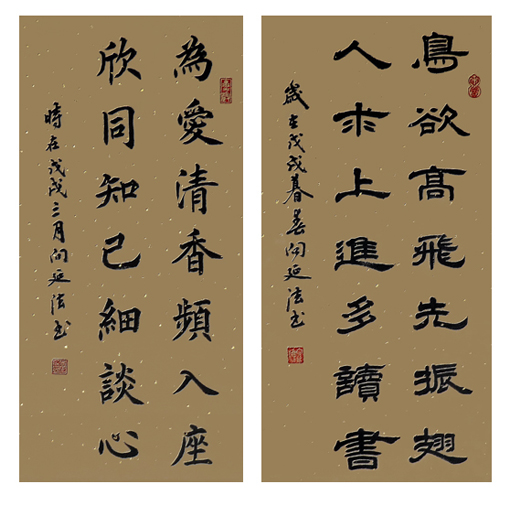 鳥欲高飛先振翅
人求上進多讀書
歲在戊戌暮春開延法書
為愛清香頻入座
欣同知己細談心
時在戊戌三月開延法書